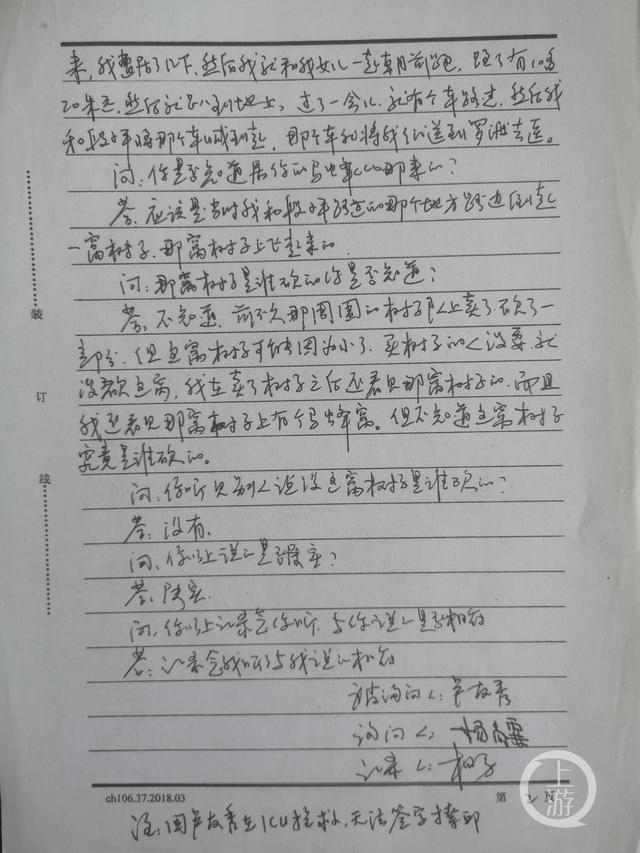 来，我蛰居了几下，然后我就和我女儿一起朝前跑，跑了有10多
20米远，然后就趴到地上，过了一会儿，就有个车路过，然后我
和段子平将那个车喊到起，那个车就将我们送到罗湖去医。
问：你是否知道蜇你的马蜂从那来的？
答：应该是当时我和段子平路过的那个地方路边倒起
一窝树子，那窝树子上飞起来的
问：那窝树子是谁砍的你是否知道？
答：不知道，前不久那周围的树子别人卖了砍了一
部分，但这窝树子可能因为小了，买树子的人没要，就
没砍这窝，我在卖了树子之后还看见那窝树子的，而且
我还看见那窝树子上有个马蜂窝。但不知道这窝树子
究竟是谁砍的。
问：你听见别人说没这窝树子是谁砍的？
答：没有。
问：你以上说的是否属实？
答：属实
问：你以上记录念你听，与你说的是否相符
答：记录念我听了与我说的相符
被询问人：
询问人：杨
记录人：
装
订
线
ch106.37.2018.03
第 2 页
注：因 在ICU抢救，无法签字捺印
上游